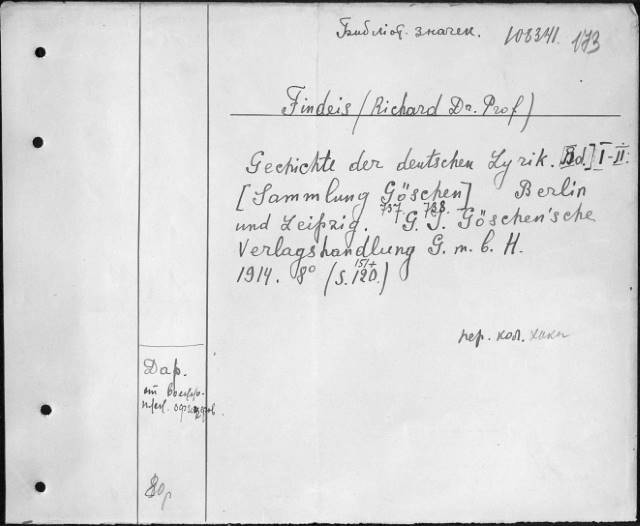 Библиот. значек. 108341. 173
Findeis (Richard Dr. Prof)
Gechichte der deutschen Lyrik. Bd.] I-II.
[Sammlung Göschen] Berlin
737. 738.
und Leipzig. G. J. Göschen'sche
Verlagshandlung G. m. b. H.
151+
1914. 8° (S. 120.)
пер. кол.
Дар.
от
80р